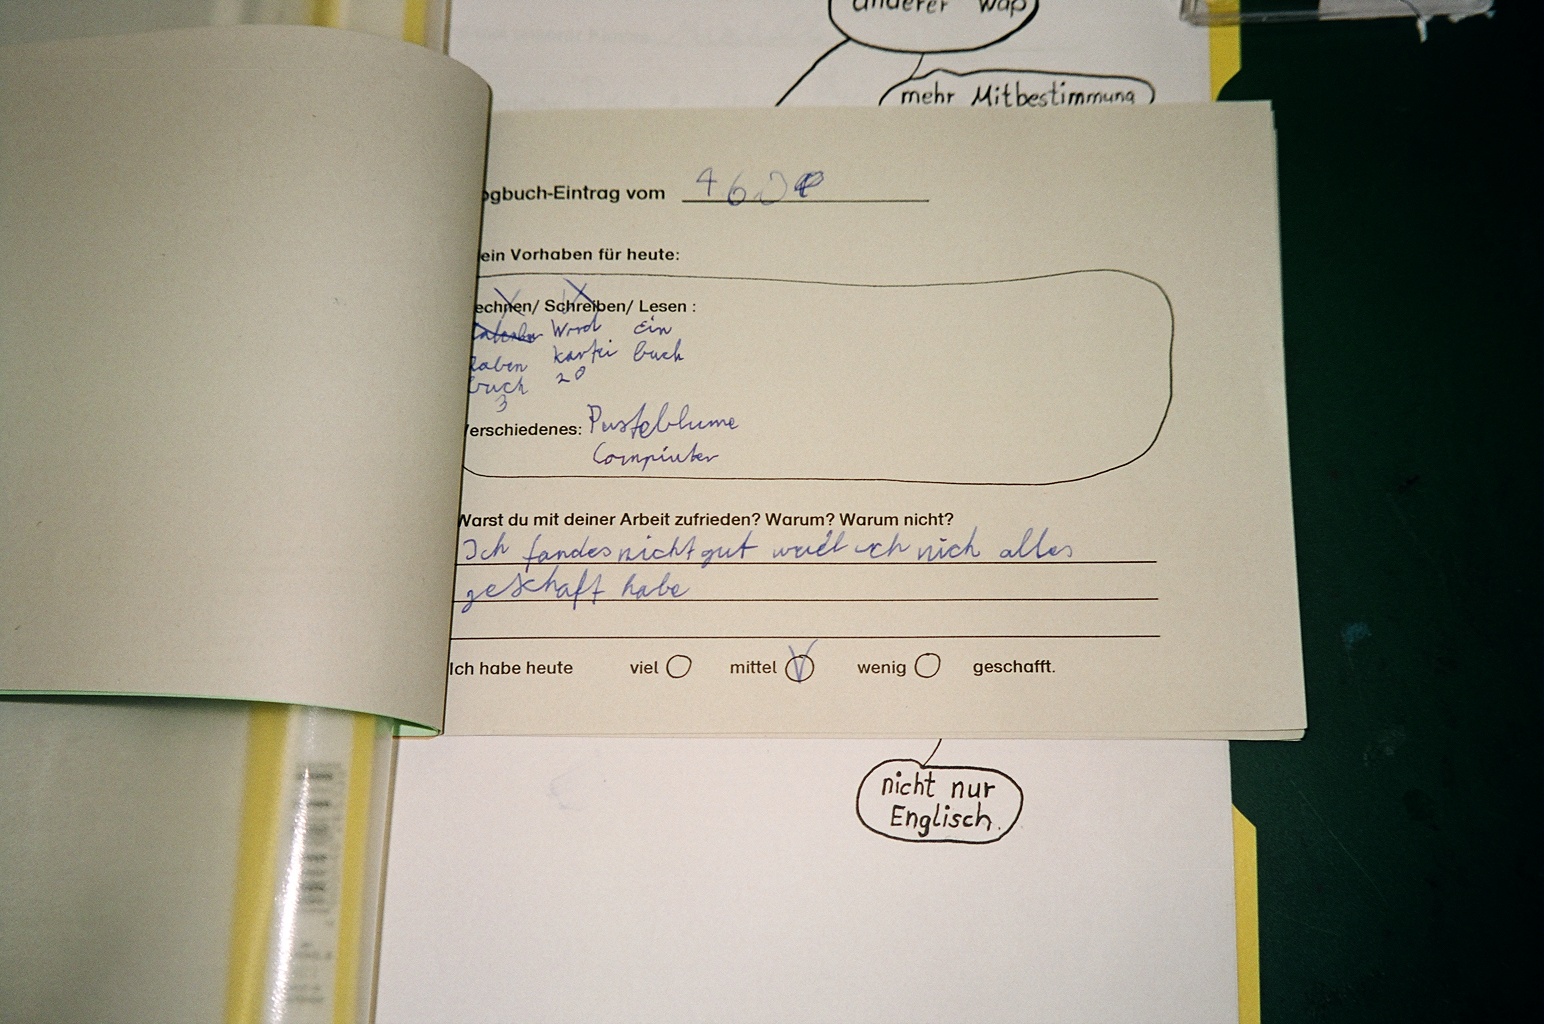 anderer Wap
mehr Mitbestimmung
ogbuch-Eintrag vom
ein Vorhaben für heute:
echnen/ Schreiben/ Lesen :
Word ein
laben kartei buch
buch 20
3
erschiedenes: Pusteblume
Compiuter
Warst du mit deiner Arbeit zufrieden? Warum? Warum nicht?
Ich fandes nicht gut weil ich nich alles
geschaft habe
Ich habe heute viel mittel wenig geschafft.
nicht nur
Englisch.